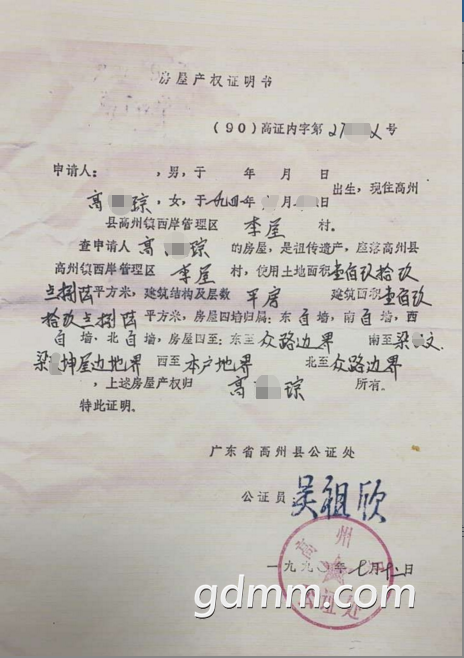 房屋产权证明书
(90)高证内字第27 号
申请人： ，男，于 年 月 日
高 琮，女，于一九四 年 月 日 出生，现住高州
县高州镇西岸管理区 李屋 村。
查申请人 高 琮 的房屋，是祖传遗产，座落高州县
高州镇西岸管理区 李屋 村，使用土地面积壹佰玖拾玖
点捌陆平方米，建筑结构及层数 平房 建筑面积壹佰玖
拾玖点捌陆 平方米，房屋四墙归属：东自墙，南自墙，西
自墙，北自墙，房屋四至：东至 众路边界 南至梁 文
梁 坤屋边地界 西至 本户地界 北至 众路边界
，上述房屋产权归 高 琮 所有。
特此证明。
广东省高州县公证处
公证员 吴祖欣
高州 公证处
一九九 年七月 日
gdmm.com